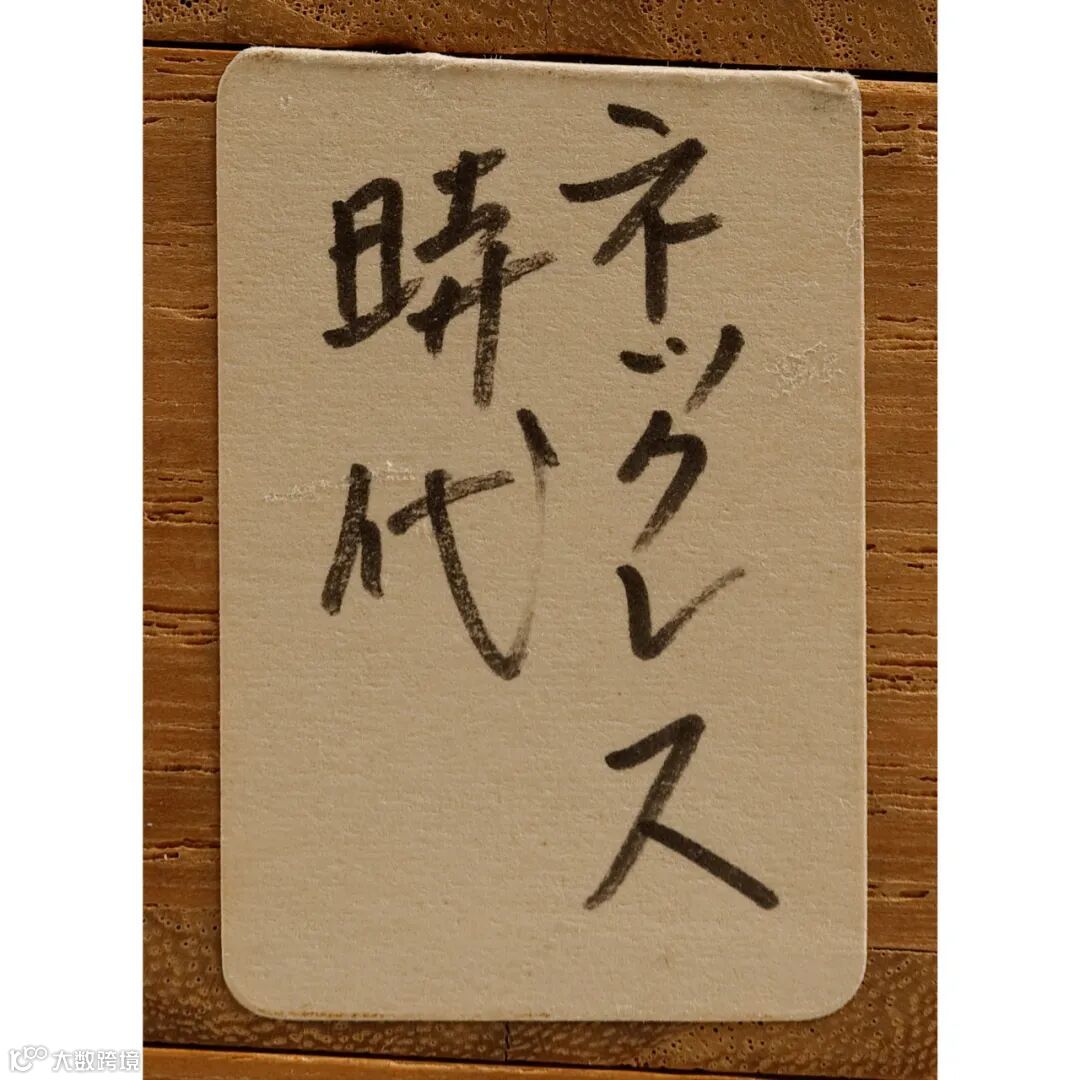 ネックレス
時代
大数跨境